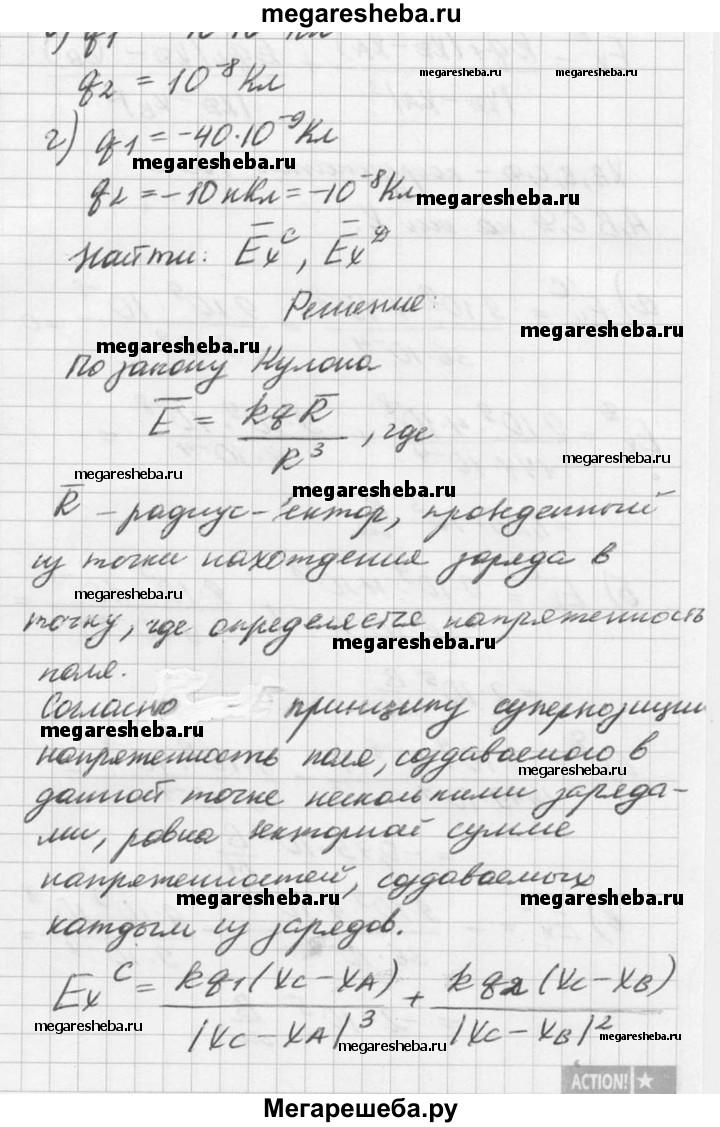 megaresheba.ru
megaresheba.ru
megaresheba.ru
q₂ = 10⁻⁸ Кл
г) q₁ = -40·10⁻⁹ Кл
megaresheba.ru
q₂ = -10 нКл = -10⁻⁸ Кл
megaresheba.ru
Найти: E̅xᶜ, E̅xᴰ
Решение:
megaresheba.ru
megaresheba.ru
По закону Кулона
E̅ = kqR̅/R³, где
megaresheba.ru
megaresheba.ru
megaresheba.ru
R̅ – радиус-вектор, проведенный
из точки нахождения заряда в
megaresheba.ru
точку, где определяется напряженность
megaresheba.ru
поля.
Согласно принципу суперпозиции
megaresheba.ru
напряженность поля, создаваемого в
megaresheba.ru
данной точке несколькими заряда-
ми, равна векторной сумме
напряженностей, создаваемых
megaresheba.ru
megaresheba.ru
каждым из зарядов.
Exᶜ = kq₁(xC – xA)/|xC – xA|³ + kq₂(xC – xB)/|xC – xB|²
megaresheba.ru
megaresheba.ru
megaresheba.ru
ACTION!
Мегарешеба.ру